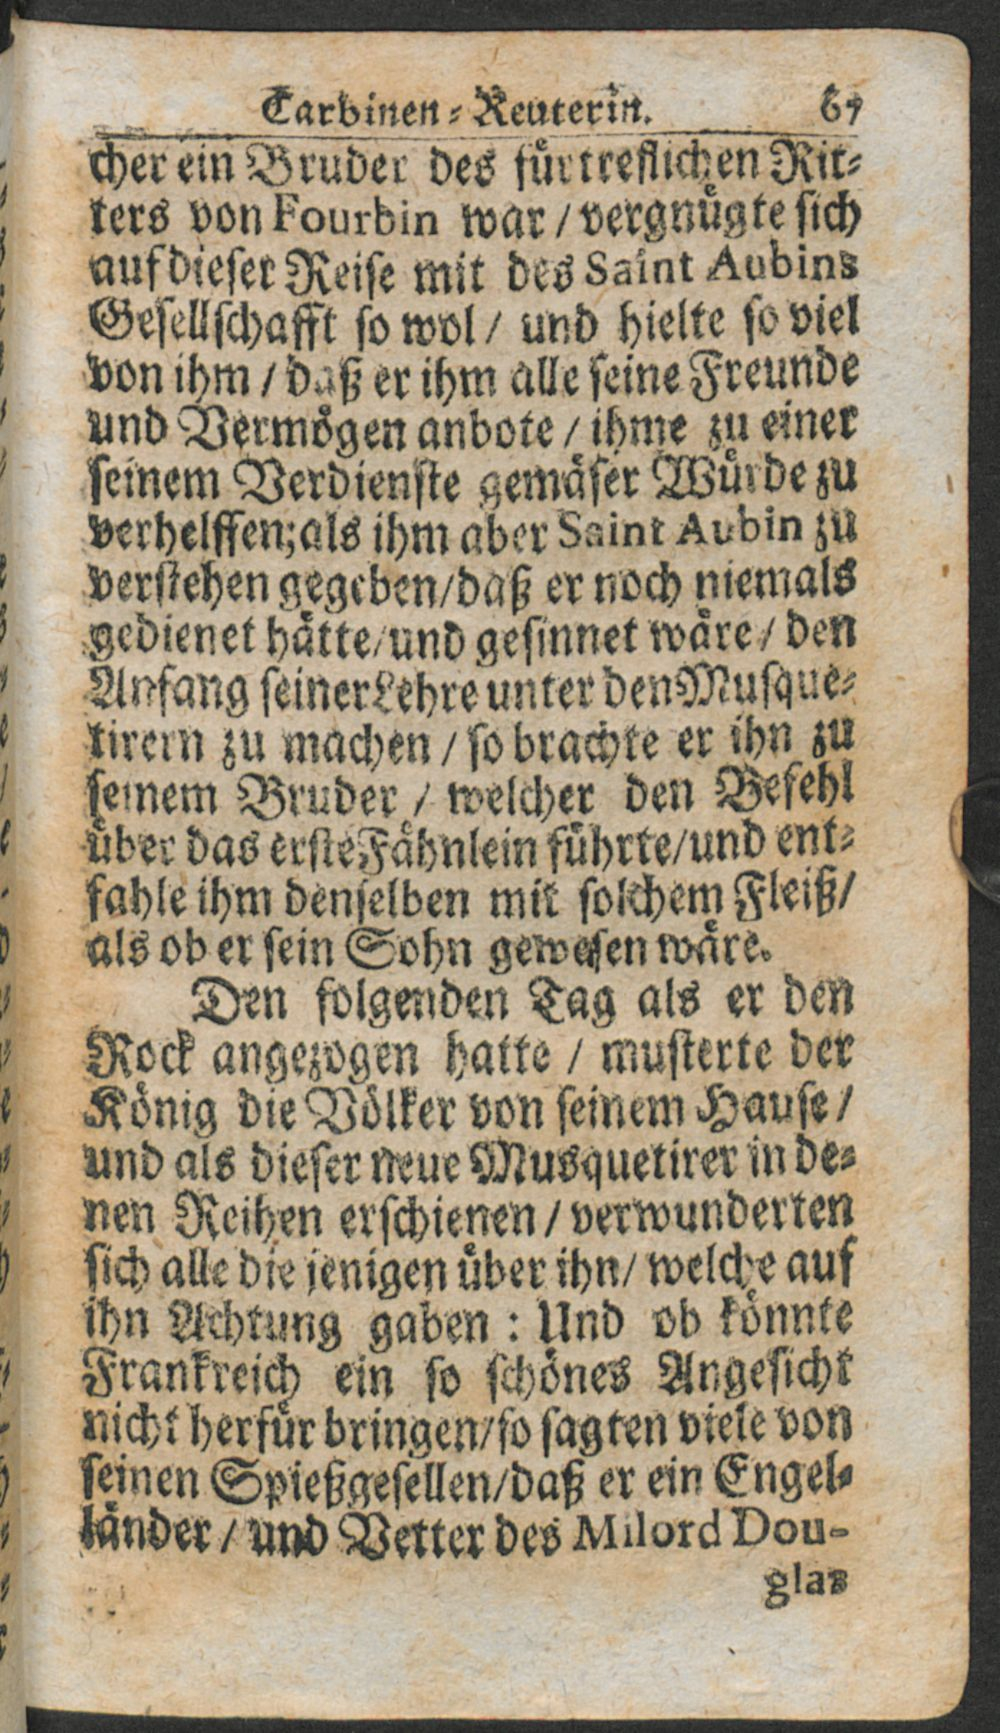 Carbinen-Reuterin. 67
cher ein Bruder des fürtreflichen Rit-
ters von Fourbin war / vergnügte sich
auf dieser Reise mit des Saint Aubins
Gesellschafft so wol / und hielte so viel
von ihm / daß er ihm alle seine Freunde
und Vermögen anbote / ihme zu einer
seinem Verdienste gemäser Würde zu
verhelffen; als ihm aber Saint Aubin zu
verstehen gegeben / daß er noch niemals
gedienet hätte / und gesinnet wäre / den
Anfang seiner Lehre unter den Musque-
tirern zu machen / so brachte er ihn zu
seinem Bruder / welcher den Befehl
über das erste Fähnlein führte / und ent-
fahle ihm denselben mit solchem Fleiß /
als ob er sein Sohn gewesen wäre.
Den folgenden Tag als er den
Rock angezogen hatte / musterte der
König die Völker von seinem Hause /
und als dieser neue Musquetirer in de-
nen Reihen erschienen / verwunderten
sich alle die jenigen über ihn / welche auf
ihn Achtung gaben : Und ob könnte
Frankreich ein so schönes Angesicht
nicht herfür bringen / so sagten viele von
seinen Spießgesellen / daß er ein Engel-
länder / und Vetter des Milord Dou-
glas